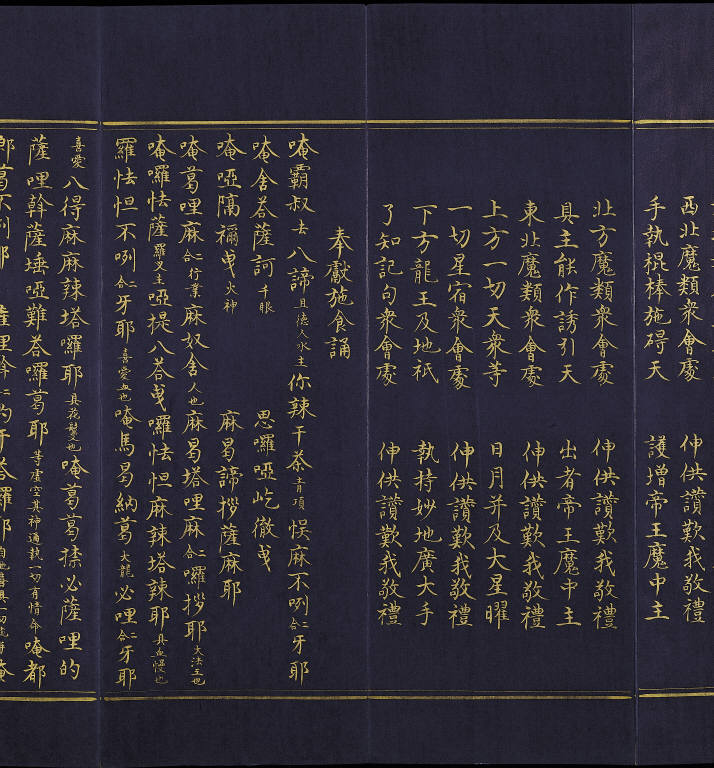 西北魔類衆會處 伸供讚歎我敬禮
手執棍棒施碍天 護增帝王魔中主
北方魔類衆會處 伸供讚歎我敬禮
具主能作誘引天 出者帝王魔中主
東北魔類衆會處 伸供讚歎我敬禮
上方一切天衆等 日月并及大星曜
一切星宿衆會處 伸供讚歎我敬禮
下方龍王及地祇 執持妙地廣大手
了知記句衆會處 伸供讚歎我敬禮
奉獻施食誦
唵霸叔去八諦 具德人水主 你辣干荼 青項 悮麻不咧 二合 牙耶
唵舍荅薩訶 千眼 思羅啞屹徹曳
唵啞隔禰曳 火神 麻曷諦拶薩麻耶
唵葛哩麻 二合 行業 麻奴舍 人也 麻曷塔哩麻 二合 囉拶耶 大法王也
唵囉怯薩 羅叉主 啞提八荅曳囉怯怛麻辣塔辣耶 具血慢也
羅怯怛不咧 二合 牙耶 喜愛血也 唵馬曷納葛 大龍 必哩 二合 牙耶
喜愛 八得麻麻辣塔囉耶 具花鬘也 唵葛葛揉必薩哩的
薩哩斡薩埵啞難荅囉葛耶 等虛空其神通執一切有情命 唵都